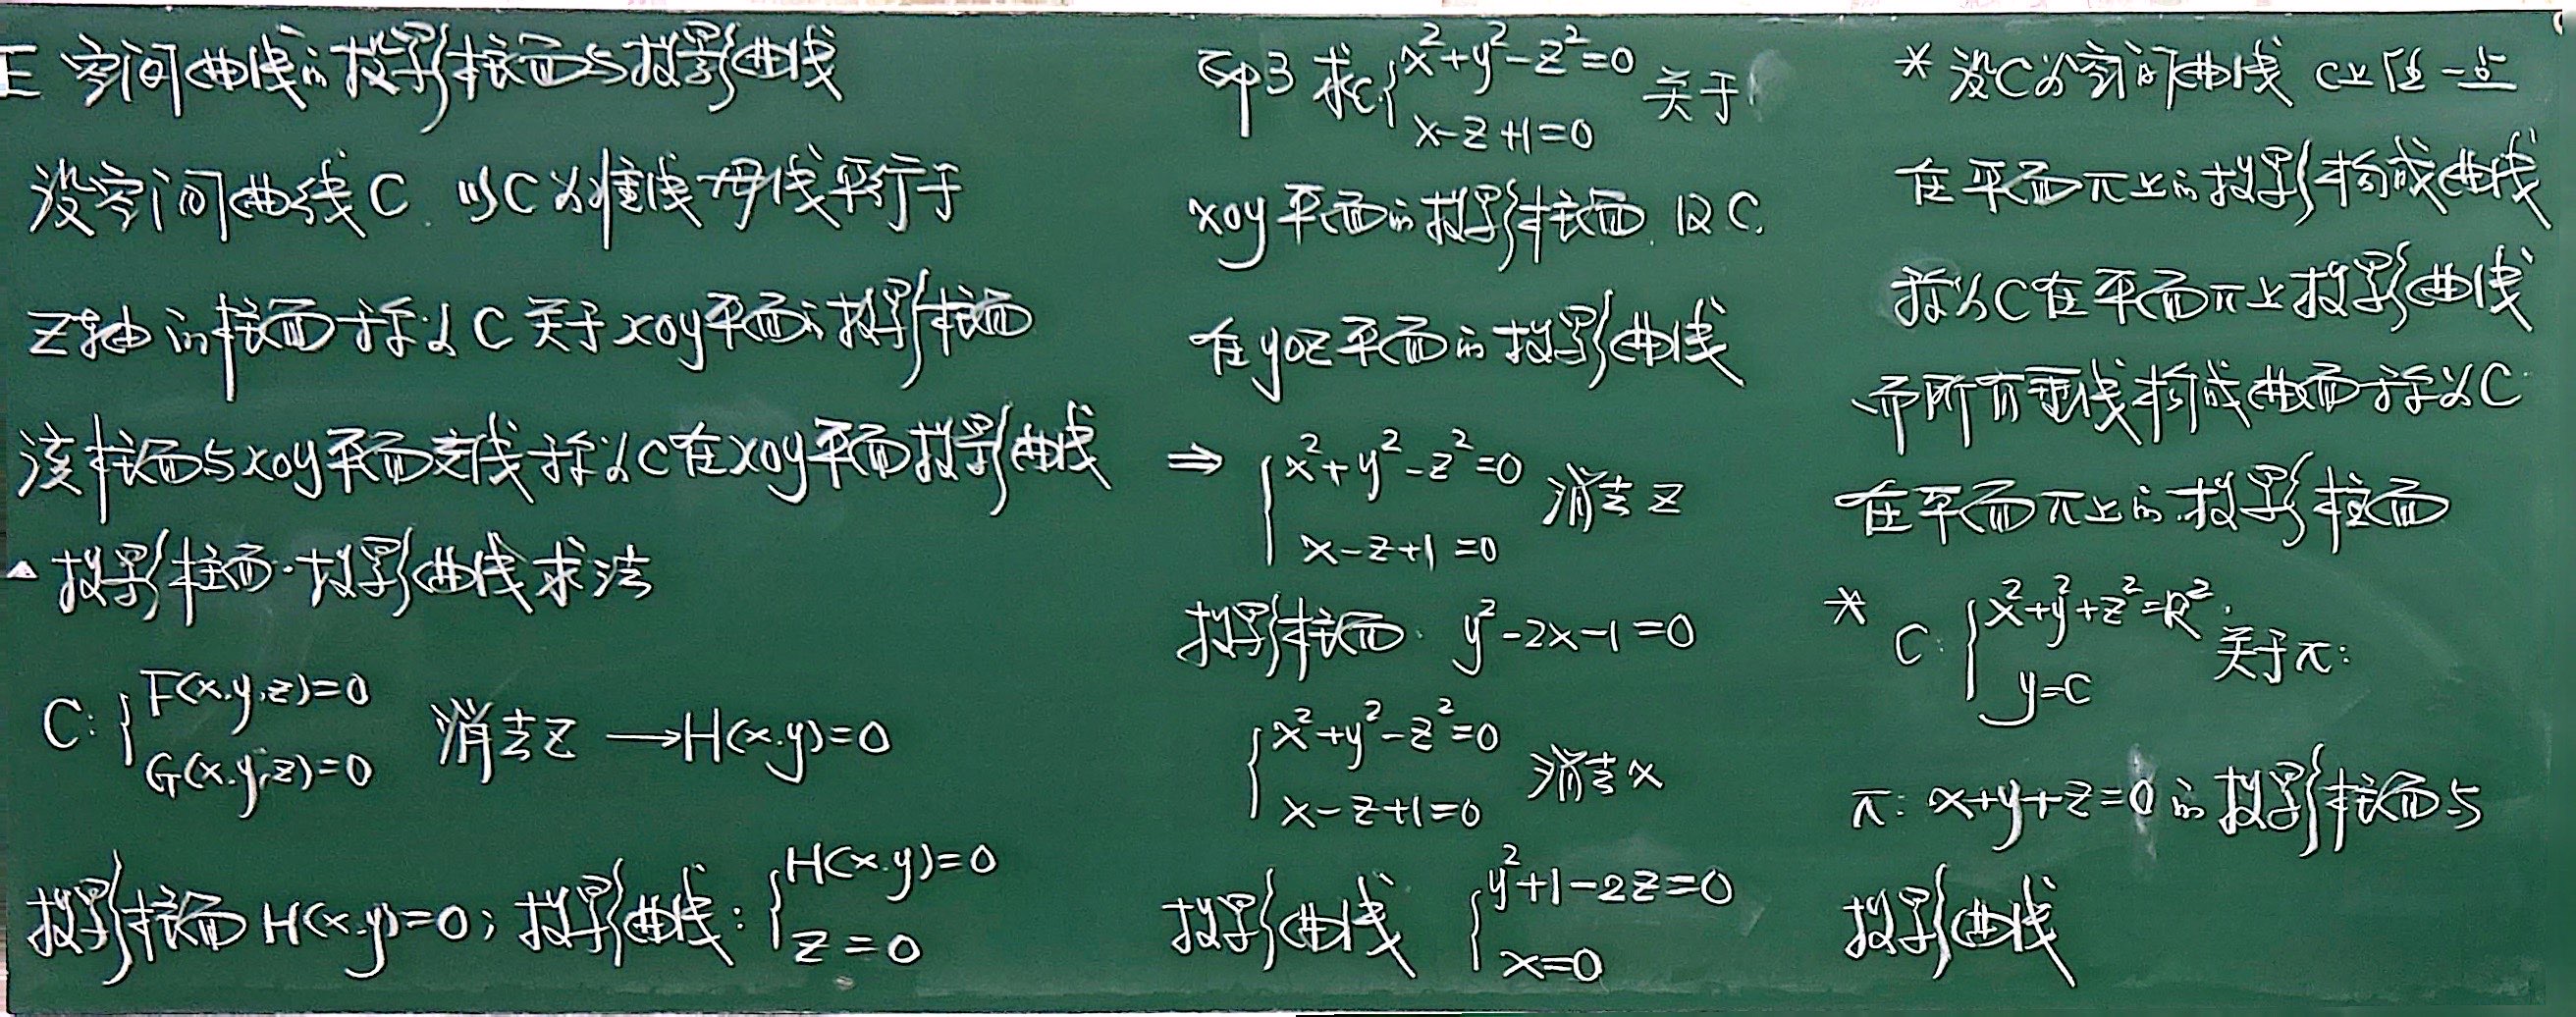 三 空间曲线的投影柱面与投影曲线
设空间曲线C. 以C为准线 母线平行于
z轴的柱面称为C关于xoy平面的投影柱面
该柱面与xoy平面交线称为C在xoy平面投影曲线
▲投影柱面·投影曲线求法
C: { F(x.y.z)=0
G(x.y.z)=0 消去z →H(x.y)=0
投影柱面 H(x.y)=0; 投影曲线: { H(x.y)=0
z=0
例3 求C: { x²+y²-z²=0
x-z+1=0 关于
xoy平面的投影柱面. 及C.
在yoz平面的投影曲线
⇒ { x²+y²-z²=0
x-z+1=0 消去z
投影柱面. y²-2x-1=0
{ x²+y²-z²=0
x-z+1=0 消去x
投影曲线 { y²+1-2z=0
x=0
* 设C为空间曲线 C上任一点
在平面π上的投影构成曲线
称为C在平面π上投影曲线
而所有垂线构成曲面称为C
在平面π上的投影柱面
* C: { x²+y²+z²=R².
y=C 关于π:
π: x+y+z=0的投影柱面与
投影曲线